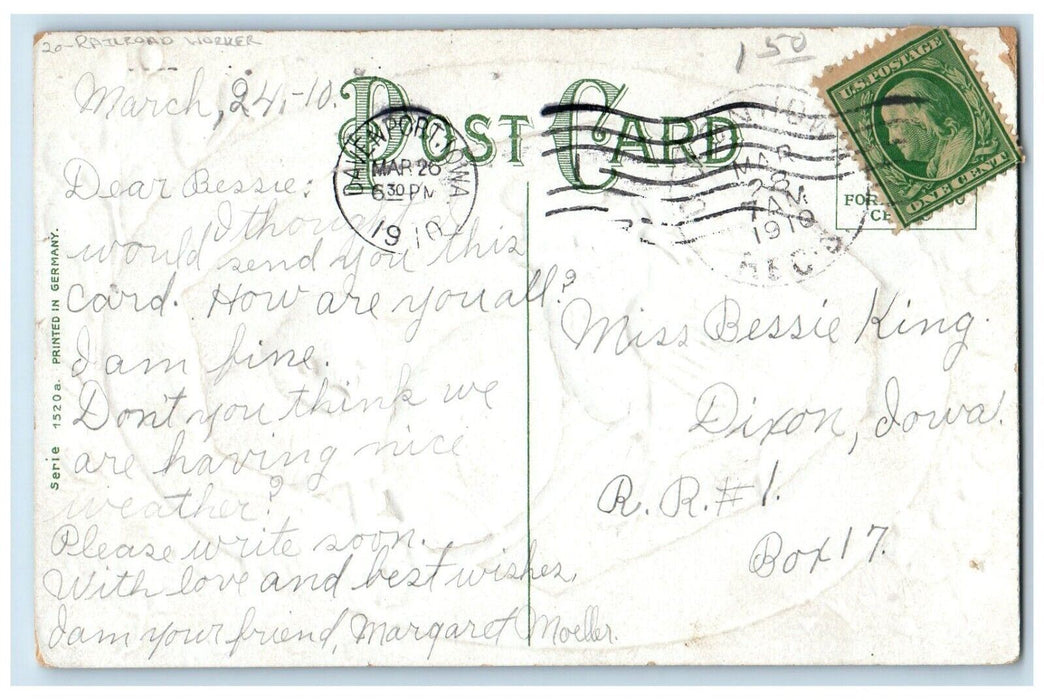 20-RAILROAD WORKER
1 50
March, 24,-10.
POST CARD
DAVENPORT. IOWA
MAR 26
6 30 PM
1910
MAR
28
7 AM
1910
REC'D
U.S. POSTAGE
ONE CENT
FOR
CE
Dear Bessie:
I thought I
would send you this
card. How are you all?
I am fine.
Don't you think we
are having nice
weather?
Please write soon.
With love and best wishes,
I am your friend, Margaret Moeller.
Miss Bessie King.
Dixon, Iowa.
R.R.#1.
Box 17.
Serie 1520a. PRINTED IN GERMANY.